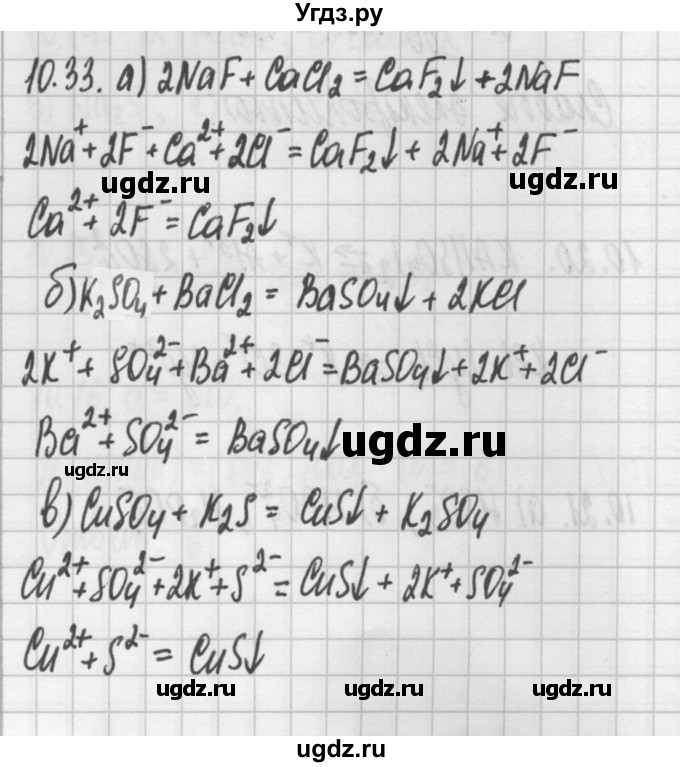 Угдз.ру
10.33. а) 2NaF + CaCl₂ = CaF₂↓ + 2NaF
2Na⁺ + 2F⁻ + Ca²⁺ + 2Cl⁻ = CaF₂↓ + 2Na⁺ + 2F⁻
ugdz.ru ugdz.ru
Ca²⁺ + 2F⁻ = CaF₂↓
б) K₂SO₄ + BaCl₂ = BaSO₄↓ + 2KCl
2K⁺ + SO₄²⁻ + Ba²⁺ + 2Cl⁻ = BaSO₄↓ + 2K⁺ + 2Cl⁻
Ba²⁺ + SO₄²⁻ = BaSO₄↓ ugdz.ru
ugdz.ru
в) CuSO₄ + K₂S = CuS↓ + K₂SO₄
Cu²⁺ + SO₄²⁻ + 2K⁺ + S²⁻ = CuS↓ + 2K⁺ + SO₄²⁻
Cu²⁺ + S²⁻ = CuS↓
ugdz.ru ugdz.ru ugdz.ru
ugdz.ru